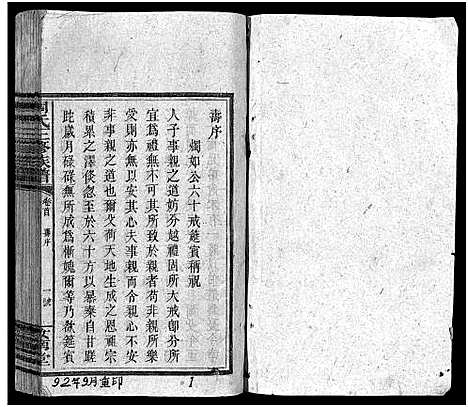 壽序
燭如公六十戒筵賓稱祝
人子事親之道妨分越禮固所大戒卽分所
宜爲禮無不可其所致於親者苟非親所樂
受則亦無以安其心夫事親而令親心不安
非事親之道也爾父荷天地生成之恩祖宗
積累之澤倐忽至於六十方以暴棄自甘蹉
跎歲月碌碌無所成爲慚媿爾等乃欲筵賓
氏三修族譜
卷首
壽序
一號
堂
92年9月重印
1